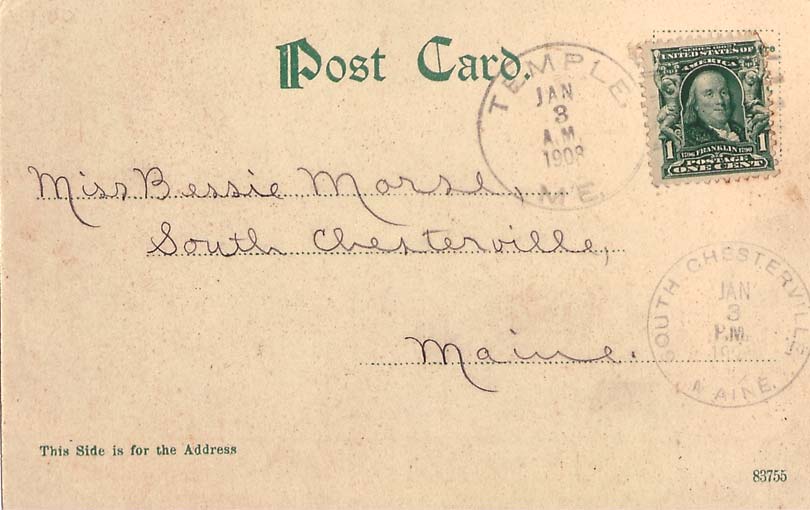 Post Card.
TEMPLE,
JAN
3
A.M.
1908
ME.
SERIES 1902
UNITED STATES OF
AMERICA
1 1
FRANKLIN
POSTAGE
ONE CENT
Miss Bessie Morse,
South Chesterville,
Maine.
SOUTH CHESTERVILLE
JAN
3
P.M.
MAINE.
This Side is for the Address
83755